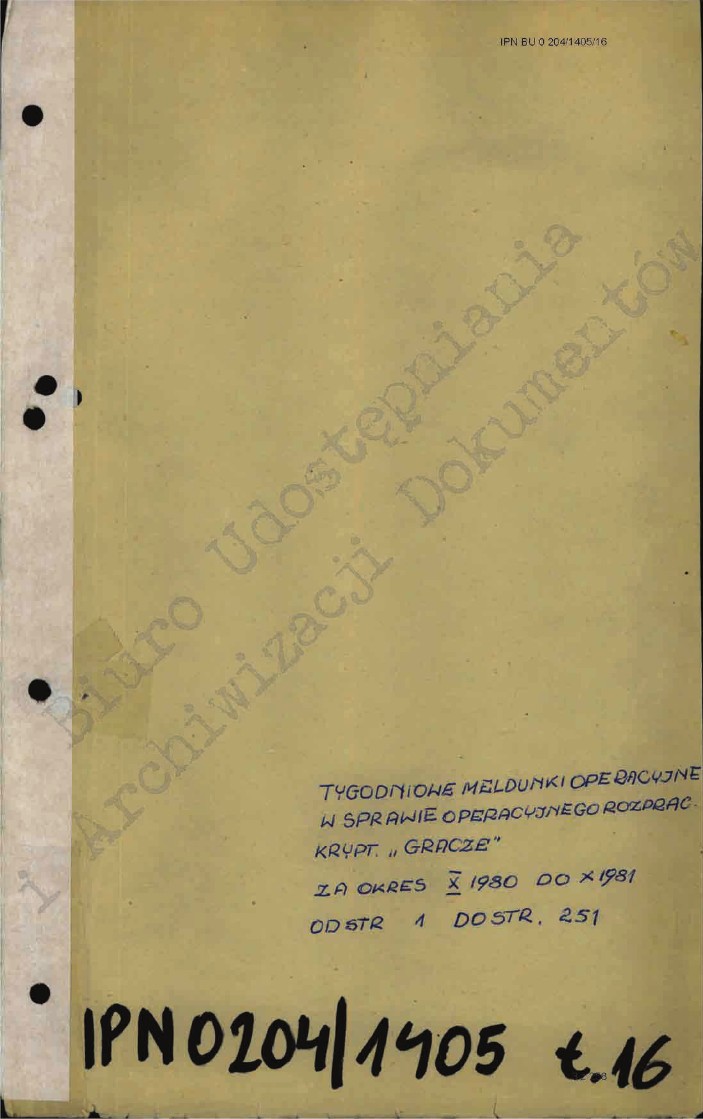 IPN BU 0 204/1405/16
Biuro Udostępniania
i Archiwizacji Dokumentów
TYGODNIOWE MELDUNKI OPERACYJNE
W SPRAWIE OPERACYJNEGO ROZPRAC.
KRYPT. „GRACZE"
ZA OKRES X 1980 DO X 1981
OD STR 1 DO STR. 251
IPN 0204/1405 t.16